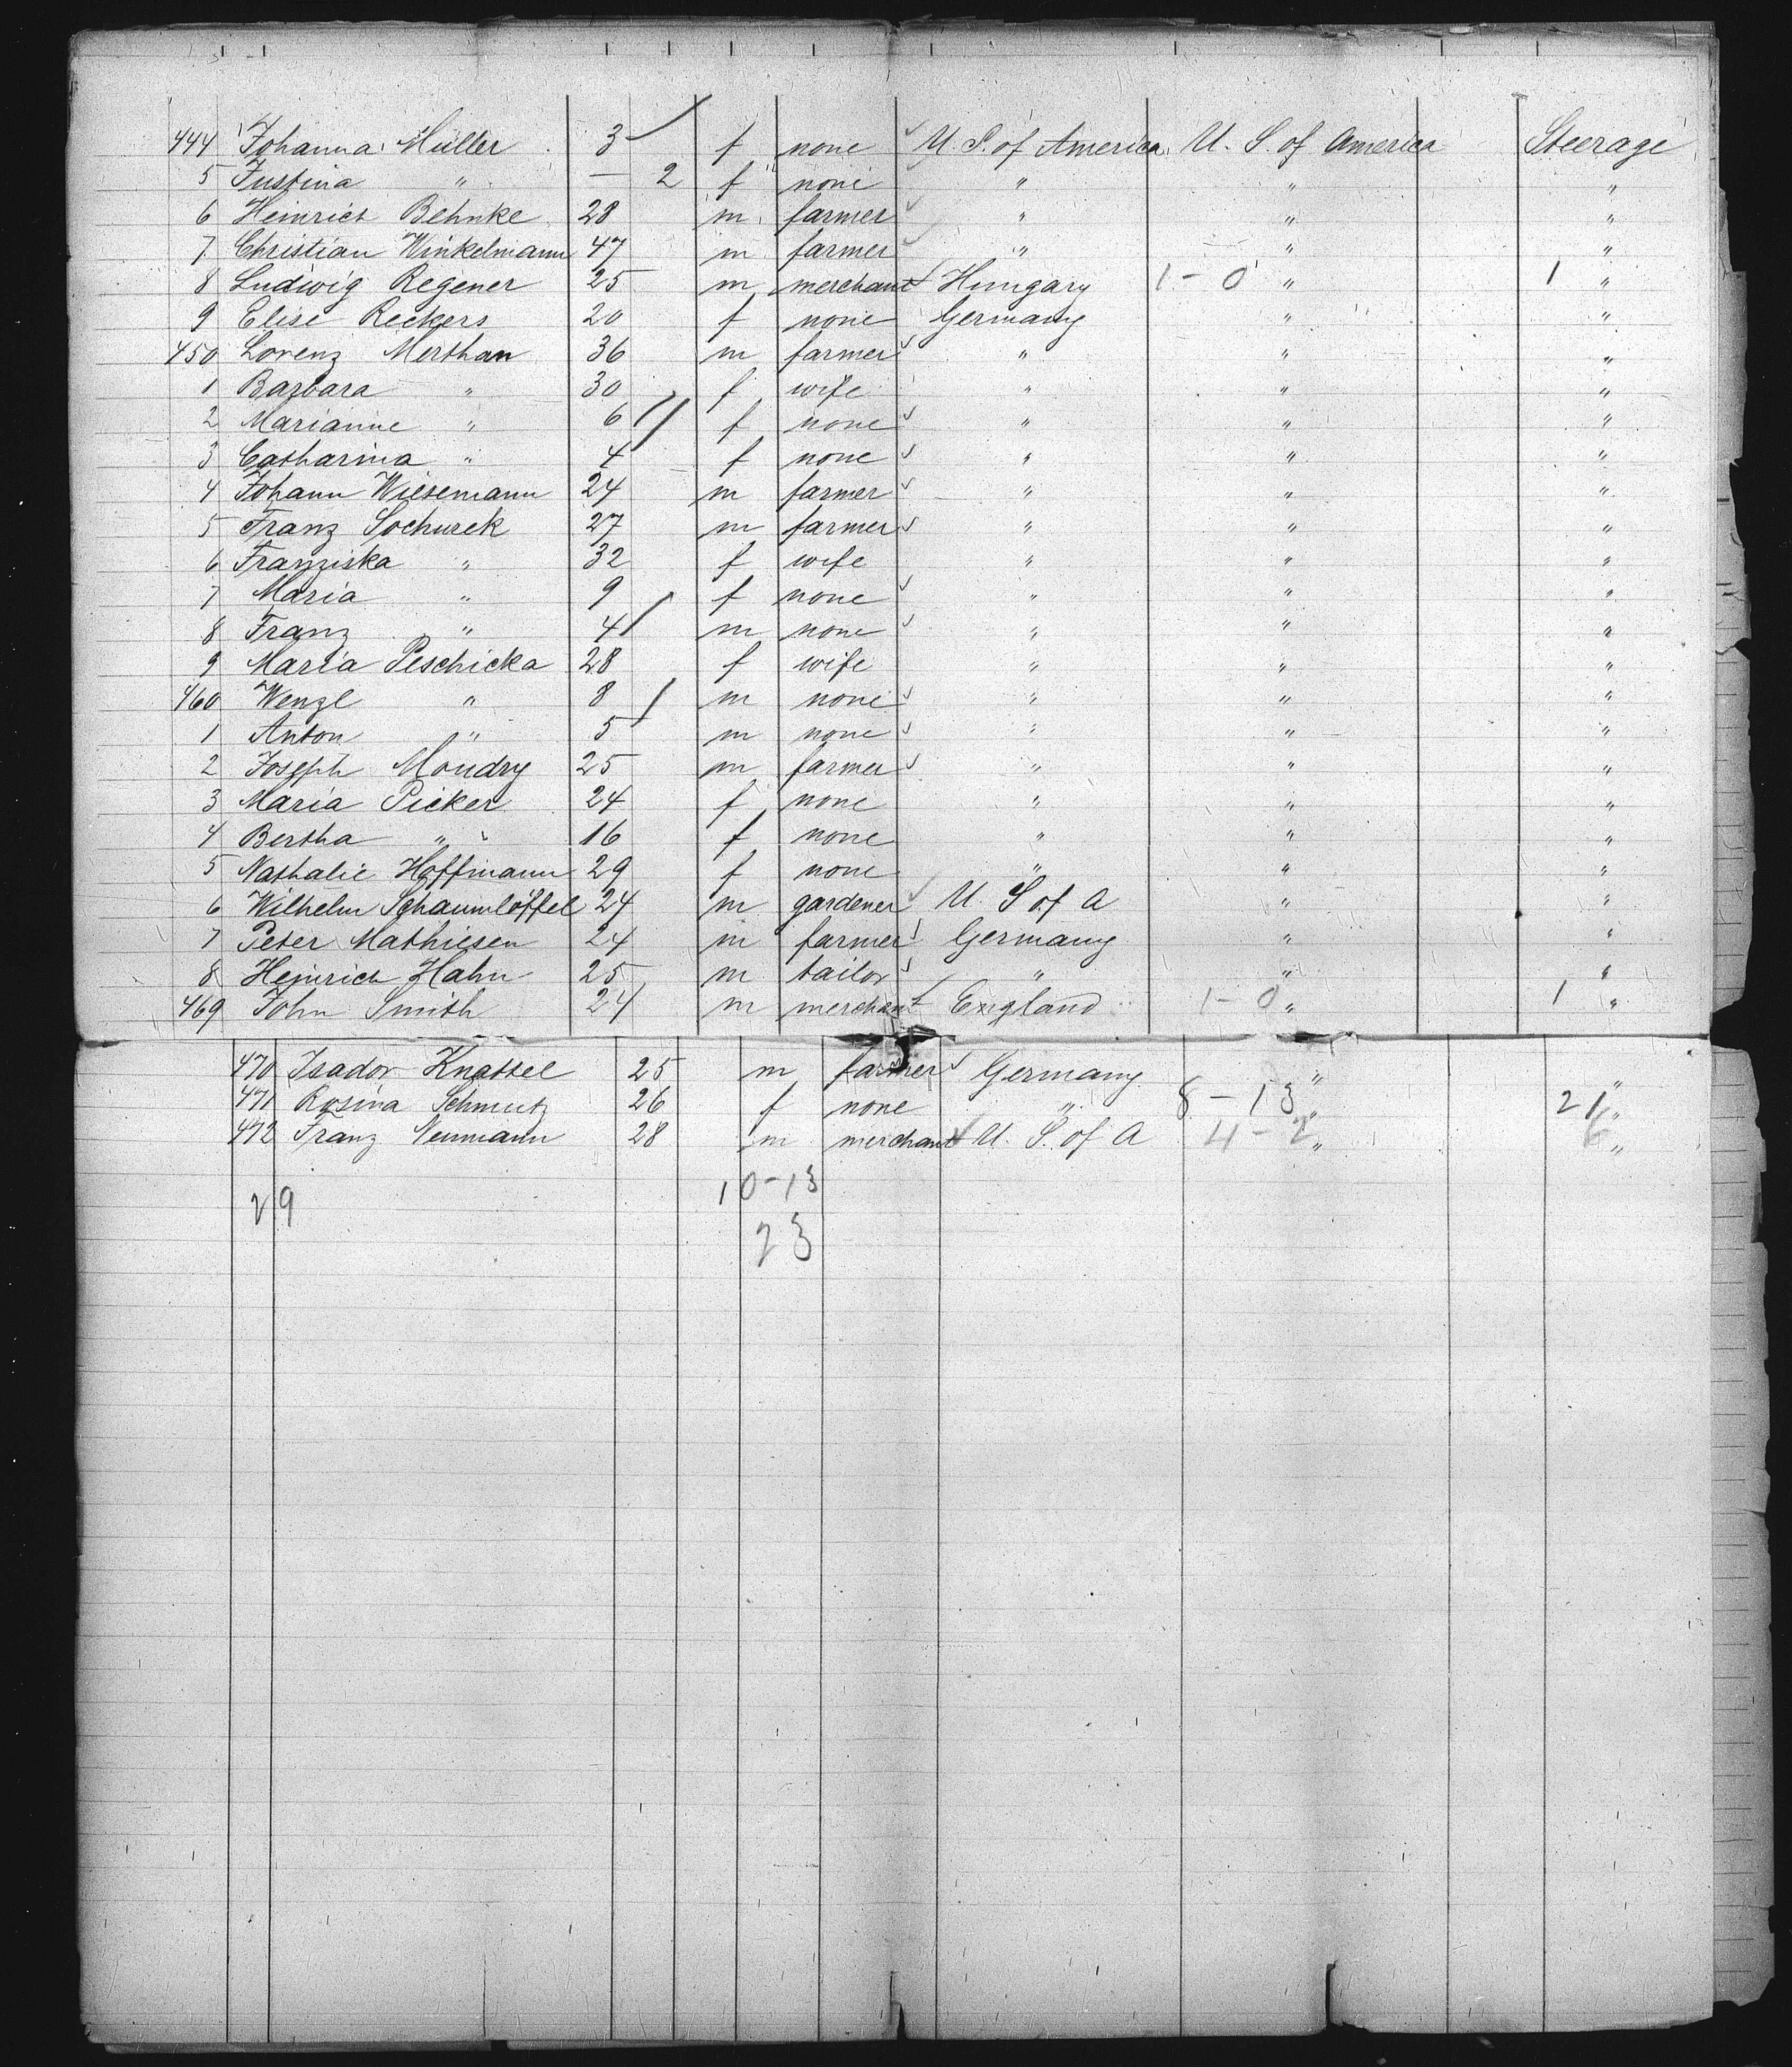 444 Johanna Müller 3 f none U. S. of America U. S. of America Steerage
5 Justina " — 2 f none " " "
6 Heinrich Behnke 28 m farmer " " "
7 Christian Winkelmann 47 m farmer " " "
8 Ludwig Regener 25 m merchant Hungary 1 - 0 " 1 "
9 Elise Reckers 20 f none Germany " "
450 Lorenz Merthan 36 m farmer " " "
1 Barbara " 30 f wife " " "
2 Marianne " 6 f none " " "
3 Catharina " 4 f none " " "
4 Johann Wiesemann 24 m farmer " " "
5 Franz Sochurek 27 m farmer " " "
6 Franziska " 32 f wife " " "
7 Maria " 9 f none " " "
8 Franz " 4 m none " " "
9 Maria Peschicka 28 f wife " " "
460 Wenzl " 8 m none " " "
1 Anton " 5 m none " " "
2 Joseph Moudry 25 m farmer " " "
3 Maria Picker 24 f none " " "
4 Bertha " 16 f none " " "
5 Nathalie Hoffmann 29 f none " " "
6 Wilhelm Schaumlöffel 24 m gardener U. S of A " "
7 Peter Mathiesen 24 m farmer Germany " "
8 Heinrich Hahn 25 m tailor " " "
469 John Smith 24 m merchant England 1 - 0 " 1 "
470 Isador Knattel 25 m farmer Germany " "
471 Rosina Schmutz 26 f none " 8 - 13 " 21 "
472 Franz Neumann 28 m merchant U. S. of A 4 - 2 " 6 "
29 10-13
23